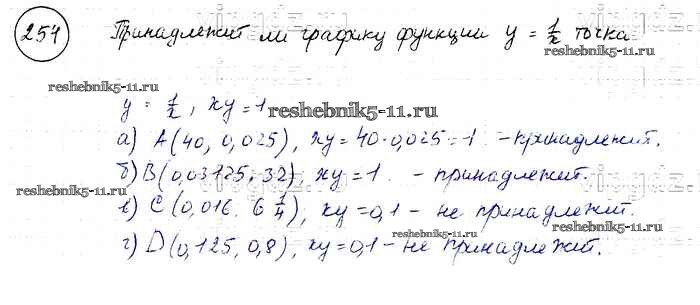 254 Принадлежит ли графику функции y = 1/x точка
reshebnik5-11.ru
y = 1/x, xy = 1
reshebnik5-11.ru
а) A(40, 0,025), xy = 40·0,025 = 1 - принадлежит.
б) B(0,03125; 32), xy = 1 - принадлежит.
reshebnik5-11.ru
в) C(0,016. 6 1/4), xy = 0,1 - не принадлежит.
г) D(0,125, 0,8), xy = 0,1 - не принадлежит.
reshebnik5-11.ru